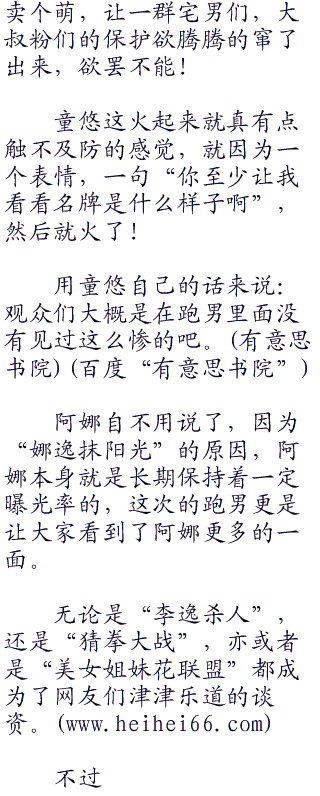 卖个萌，让一群宅男们，大
叔粉们的保护欲腾腾的窜了
出来，欲罢不能！
童悠这火起来就真有点
触不及防的感觉，就因为一
个表情，一句“你至少让我
看看名牌是什么样子啊”，
然后就火了！
用童悠自己的话来说：
观众们大概是在跑男里面没
有见过这么惨的吧。(有意思
书院)(百度“有意思书院”)
阿娜自不用说了，因为
“娜逸抹阳光”的原因，阿
娜本身就是长期保持着一定
曝光率的，这次的跑男更是
让大家看到了阿娜更多的一
面。
无论是“李逸杀人”，
还是“猜拳大战”，亦或者
是“美女姐妹花联盟”都成
为了网友们津津乐道的谈
资。(www.heihei66.com)
不过